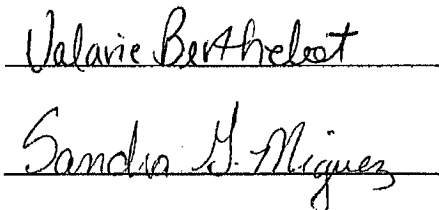 Valarie Berthelot
Sandra G. Miguez